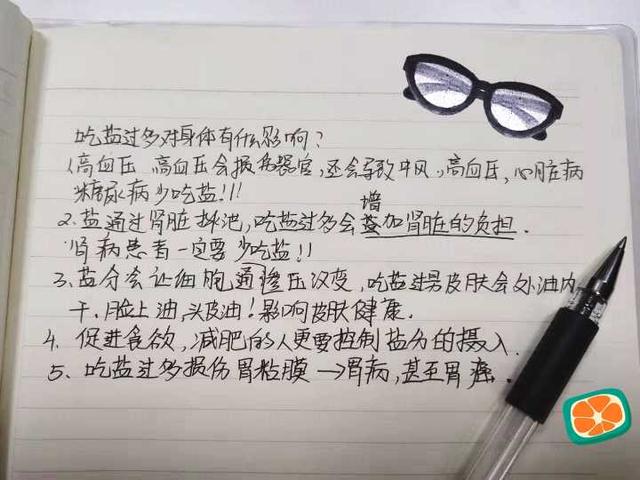 吃盐过多对身体有什么影响?
1.高血压、高血压会损伤器官,还会导致中风,高血压,心脏病
糖尿病少吃盐!!!
增
2.盐通过肾脏排泄,吃盐过多会加肾脏的负担.
肾病患者一定要少吃盐!!
3、盐分会让细胞通渗压改变,吃盐过多皮肤会外油内
干.脸上油,头皮油!影响皮肤健康.
4.促进食欲,减肥的人更要控制盐分的摄入.
5、吃盐过多损伤胃粘膜→胃病,甚至胃癌.